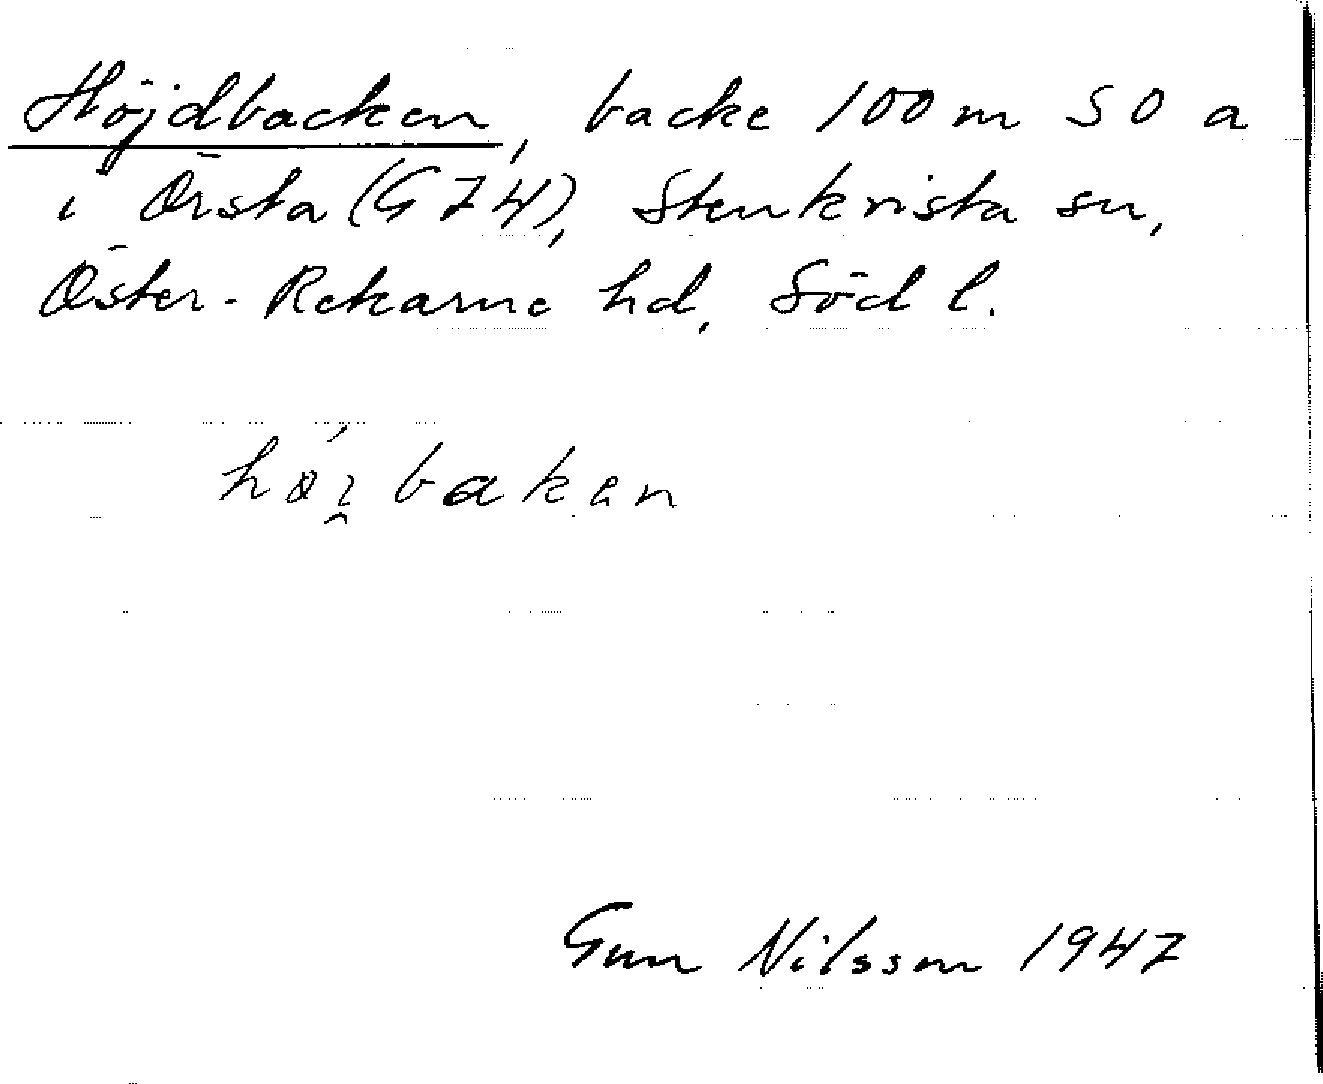 Höjdbacken, backe 100 m SO a
i Örsta (G 74), Stenkvista sn,
Öster-Rekarne hd, Söd l.
høí̯bakən
Gun Nilsson 1947